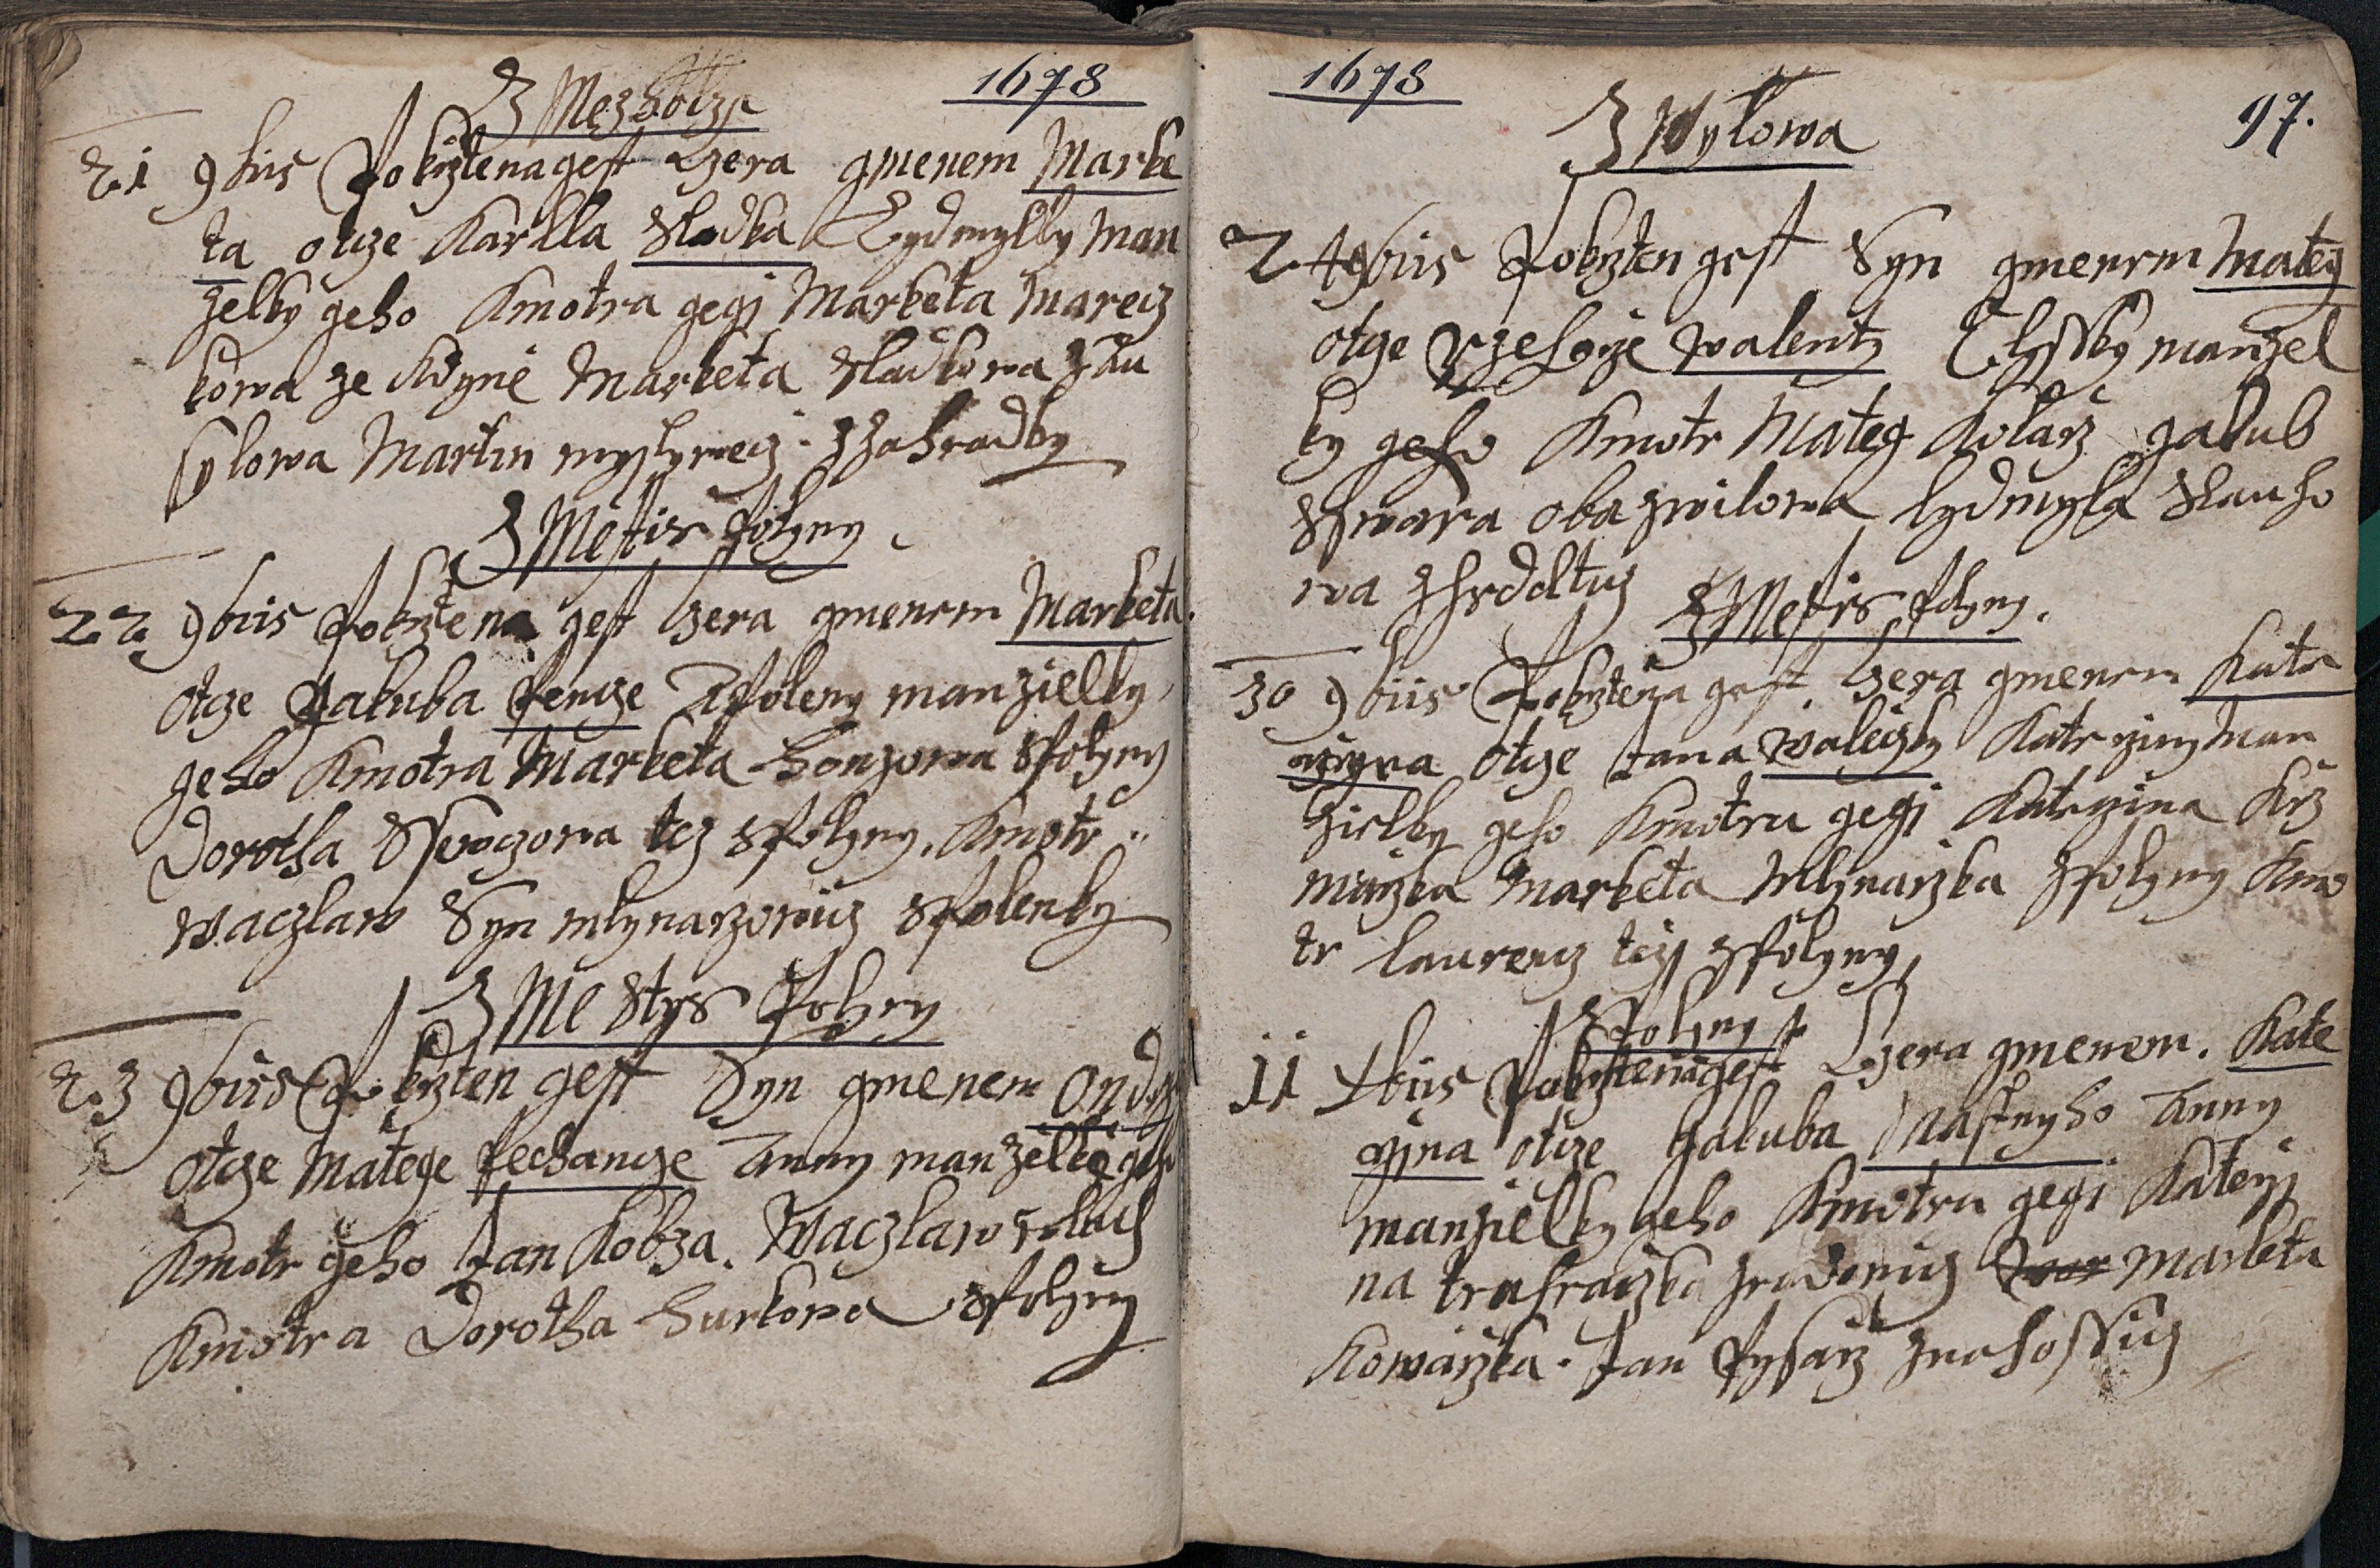 1678
Z Mezholze
21 9bris Pokrztena gest Dczera gmenem Marke
ta otcze Karlla Sladka Lydmylly man
zelky geho Kmotra gegi Marketa Marecz
kowa ze Kdyne Marketa Sladkowa z Au
sylowa Martin z Zahradky
Z Mestis Polyny
22 9bris Pokrztena gest Dczera gmenem Marketa
otcze Jakuba Pencze Apoleny manzielky
geho Kmotra Marketa Honzowa z Polyny
Dorotha tez z Polyny. Kmotr
Waczlaw Syn mlynarzowicz z Polenky
Z Mestys Polyny
23 9bris Pokrzten gest Syn gmenem Ondrz
otcze Matege Pechancze Anny manzelky geho
Kmotr geho Jan Kobza. Waczlaw
Kmotra Dorotha Hurkowa z Polyny
1678
97.
Z Wylowa
24 9bris Pokrzten gest Syn gmenem Mateg
otcze Rzehorze Walenty manzel
ky geho Kmotr Mateg Kolarz Jakub
oba z Wilowa Lydmyla Slauho
wa
Z Mestis Polyny.
30 9bris Pokrztena gest Dczera gmenem Katr
zyna otcze Jana Waleczky Katrziny man
zielky geho Kmotra gegi Katrzina Krz
Marketa Mlynarzka z Polyny Kmo
tr Laurencz tez z Polyny
Z Polyny
11 Xbris Pokrztena gest Dczera gmenem. Kate
rzina otcze Jakuba Mastnyho Anny
manzielky geho Kmotra gegi Katerzi
na Marketa
Kowarzka. Jan Pysarz